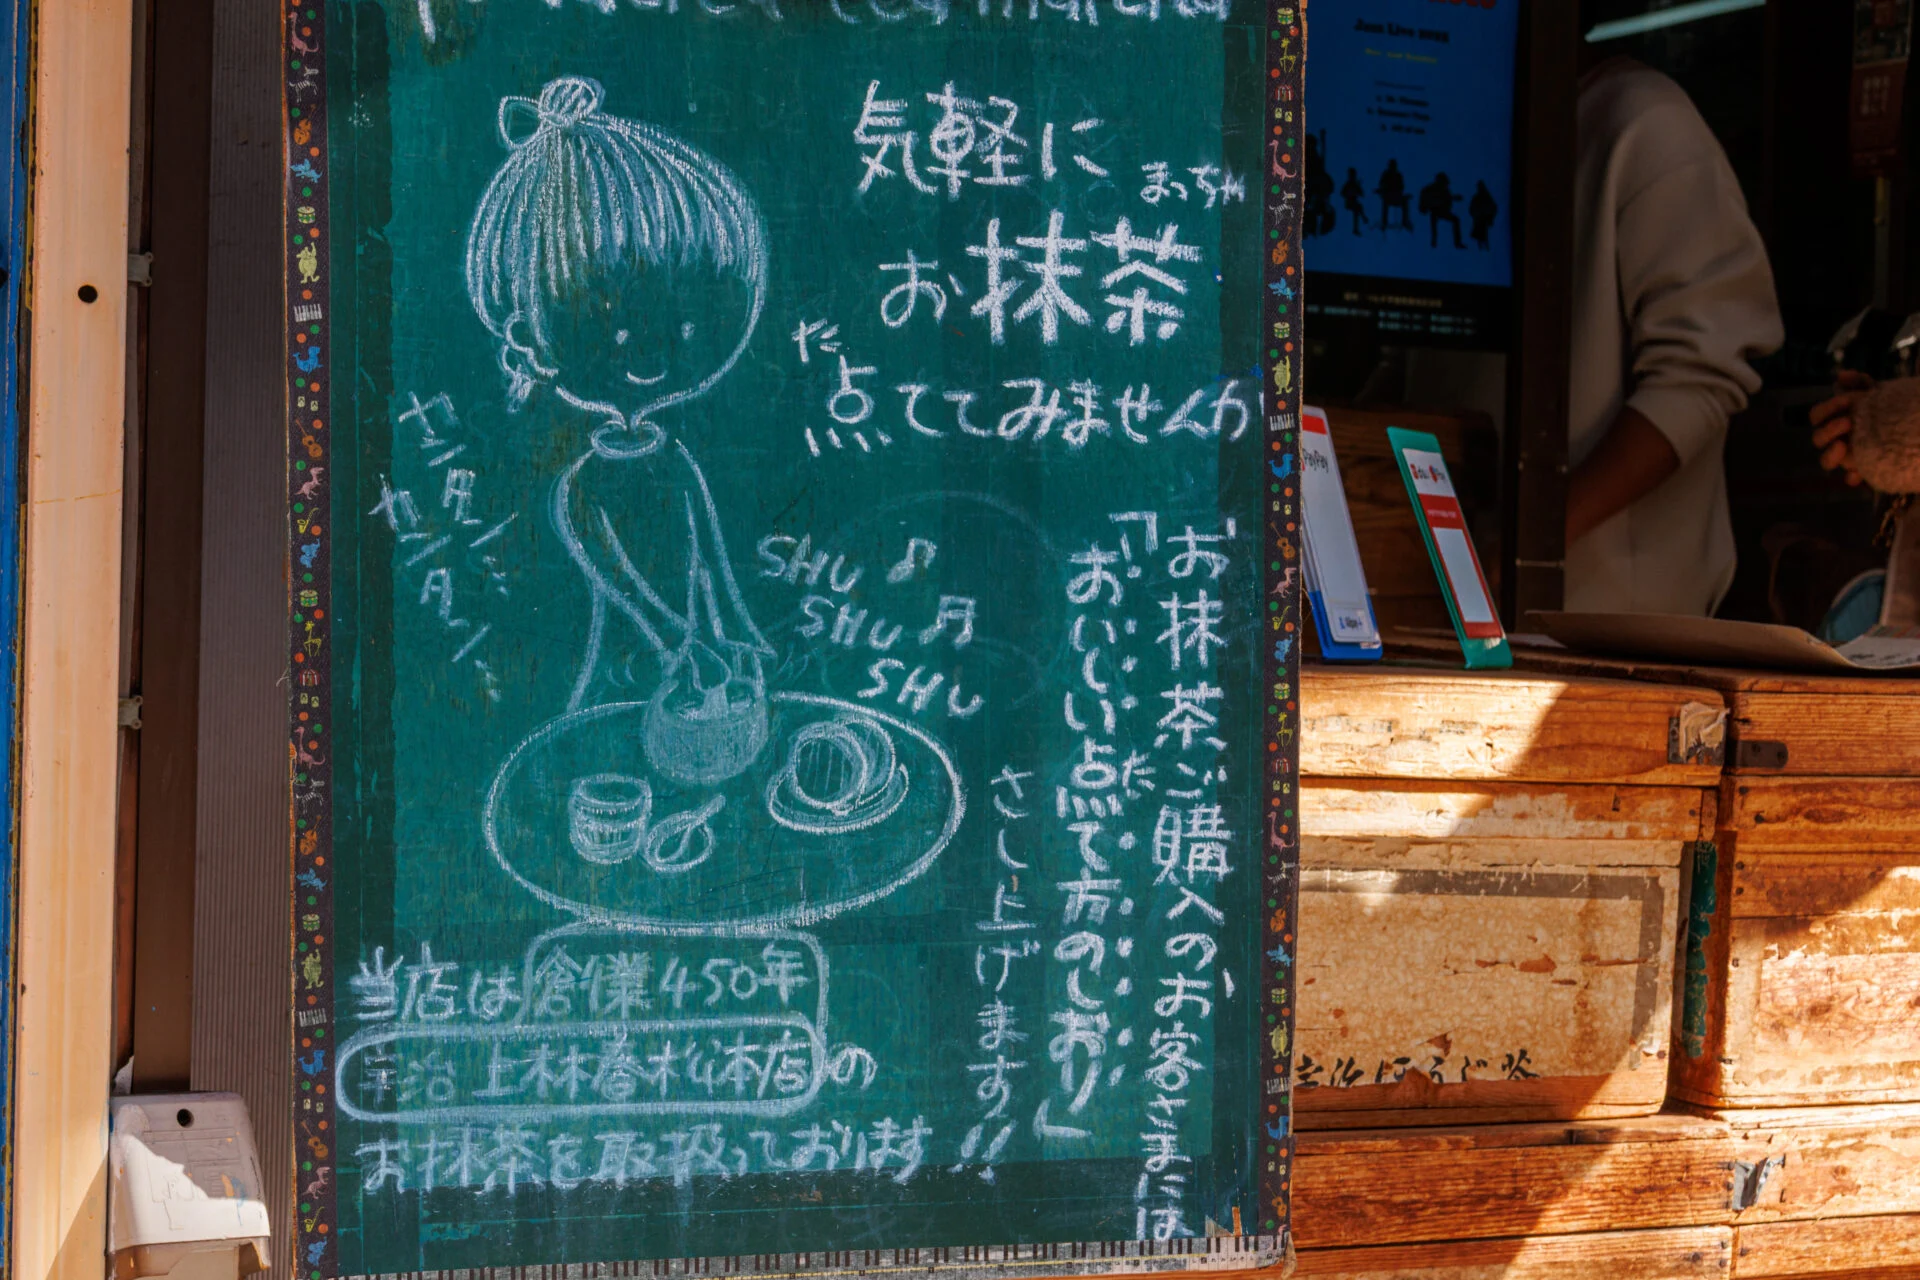 powdered tea matcha
気軽に
まっちゃ
お抹茶
た
点ててみませんか
シャカ
SHU
SHU
SHU
お抹茶ご購入のお客さまには
「おいしい点て方のしおり」
た
さし上げます!!
当店は創業450年
宇治 上林春松本店の
お抹茶を取扱っております
Jazz Live
PayPay
d払い
Pay
Alipay+
宇治ほうじ茶